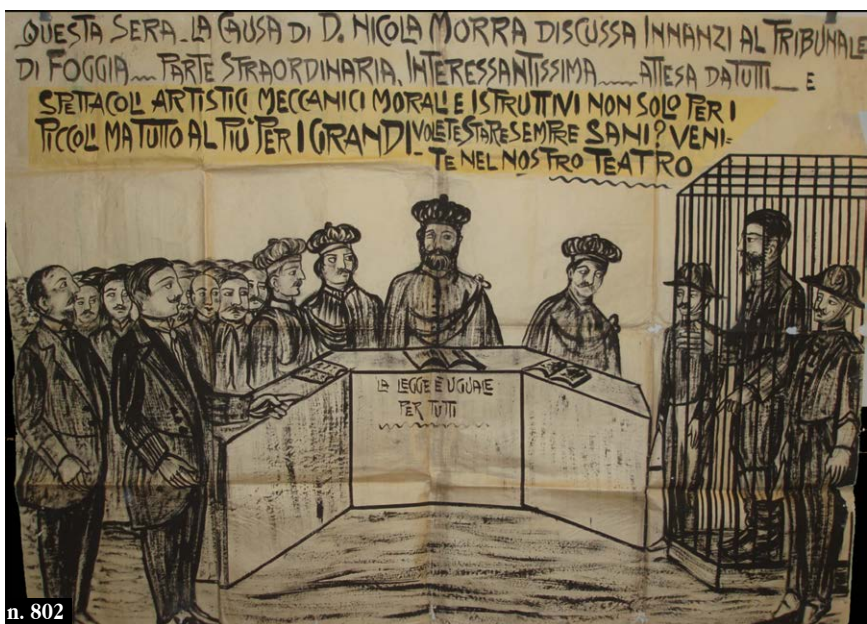 QUESTA SERA - LA CAUSA DI D. NICOLA MORRA DISCUSSA INNANZI AL TRIBUNALE
DI FOGGIA ... PARTE STRAORDINARIA, INTERESSANTISSIMA .... ATTESA DA TUTTI __ E
SPETTACOLI ARTISTICI MECCANICI MORALI E ISTRUTTIVI NON SOLO PER I
PICCOLI MA TUTTO AL PIÙ PER I GRANDI - VOLETE STARE SEMPRE SANI? VENI=
TE NEL NOSTRO TEATRO
LA LEGGE È UGUALE
PER TUTTI
n. 802